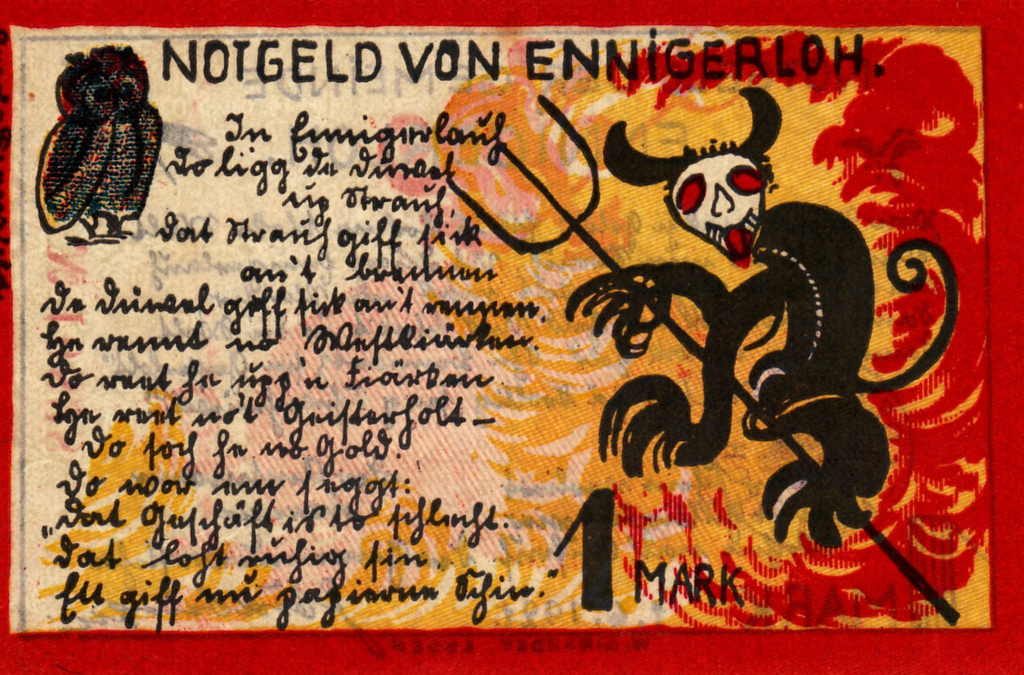 NOTGELD VON ENNIGERLOH.
In Ennigerlauh
Do ligg de Düwel
up Strauh,
dat Strauh giff sick
an't brennen
De Düwel giff sick an't rennen.
He rennt no Westkiärken.
Do reet he upp'n Fiärken
He reet no't Geisterholt—
Do soch he no Gold.
Do wor em seggt:
„Dat Geschäft is to schlecht.
Dat loht ruhig sin
Ett giff nu papierne Schin."
1 MARK